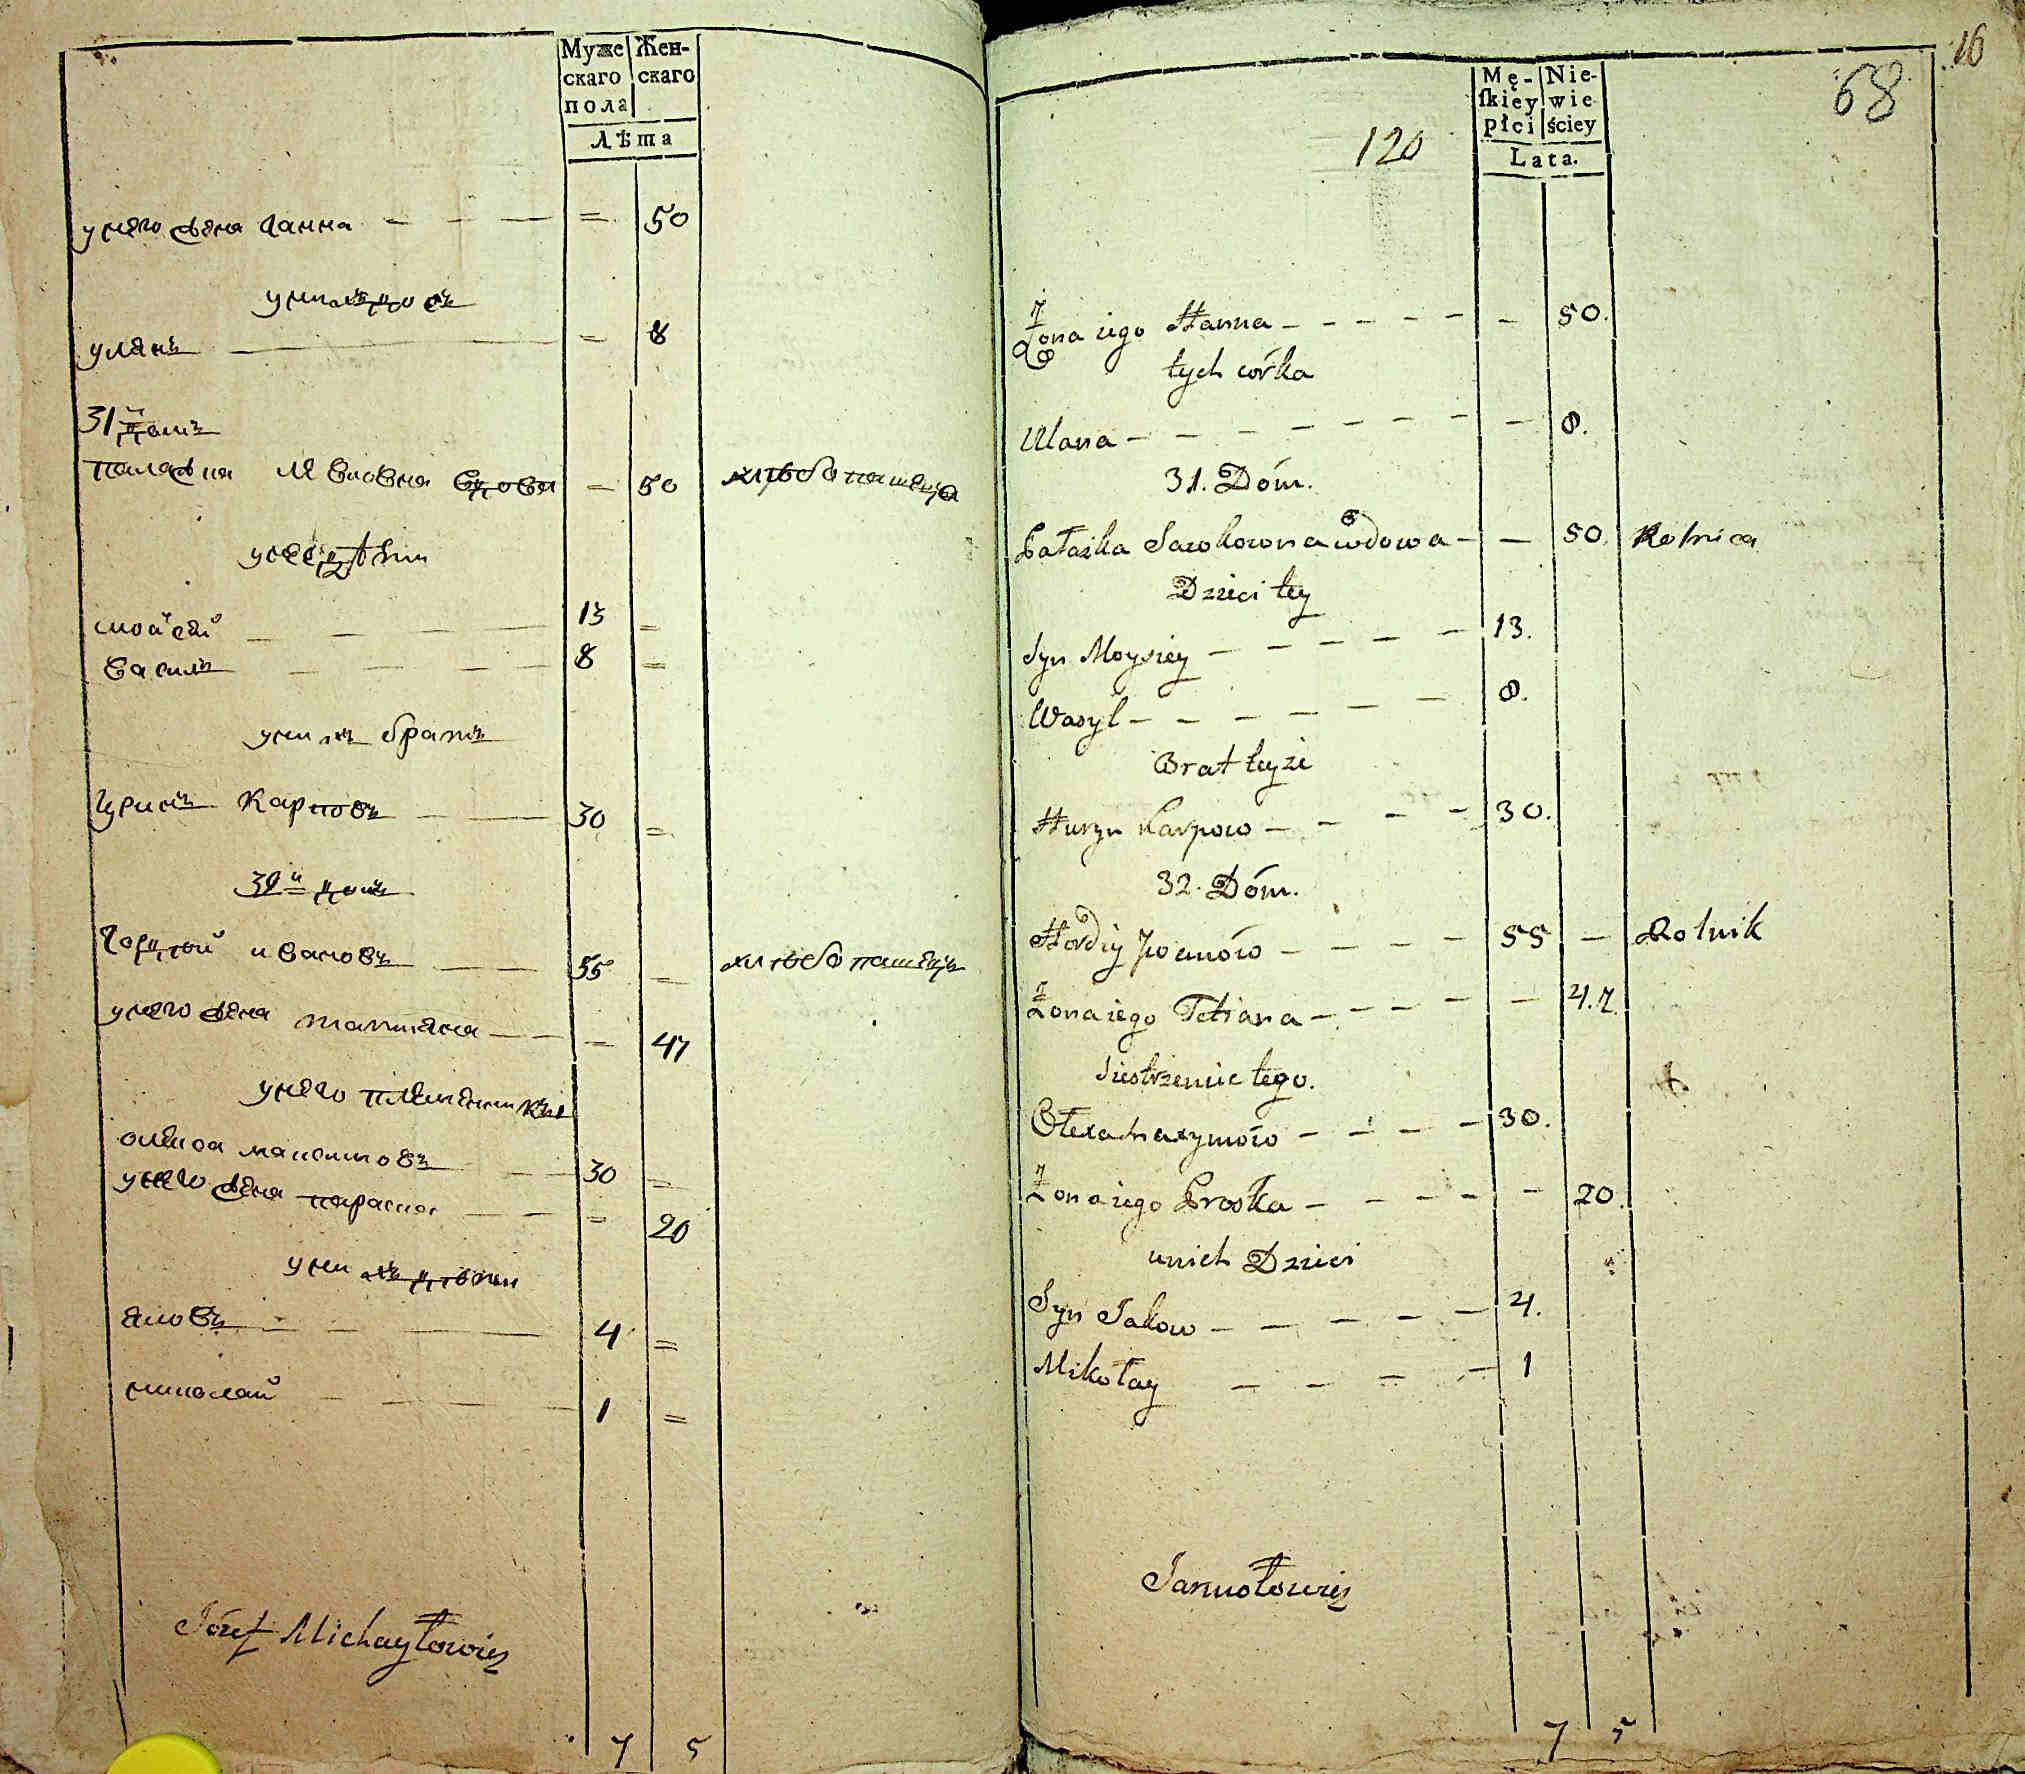 Муже Жен-
скаго скаго
пола
Лѣта
у него жена Ганна - - — = 50
у них дочь
Уляна — = 8
31й домъ
Палажка вдова = 50 хлѣбопашеца
у неё дѣти
Мойсей — — — 13 =
Василь — — — 8 =
у них братъ
Карповъ — — 30 =
32й домъ
Гордѣй Ивановъ — — 55 = хлѣбопашецъ
у него жена Татияна — — = 47
у него племянники
Олекса Максимовъ — 30 =
у него жена Параска — — = 20
у них дѣти
Яковъ — — — 4 =
Николай — — — 1 =
Józef Michayłowicz
7 5
16
68
120
Mę- Nie-
ſkiey wie
płci ściey
Lata.
Żona iego Hanna - - - - - - 50.
tych córka
Ulana - - - - - - - - 8.
31. Dóm.
Pałażka Sawkowna wdowa - - 50. Rolnica
Dzieci tey
Syn Moysiey - - - - - 13.
Wasyl - - - - - - 8.
Brat teyże
Huryn Karpow - - - - 30.
32. Dóm.
Hordiy Iwanów - - - - 55 - Rolnik
Żona iego Tetiana - - - - - 47.
Siestrzenic tego.
Ołexa Maxymów - - - - 30.
Żona iego Proska - - - - - - 20.
u nich Dzieci
Syn Jakow - - - - - 4.
Mikołay - - - - 1
Samołowicz
7 5